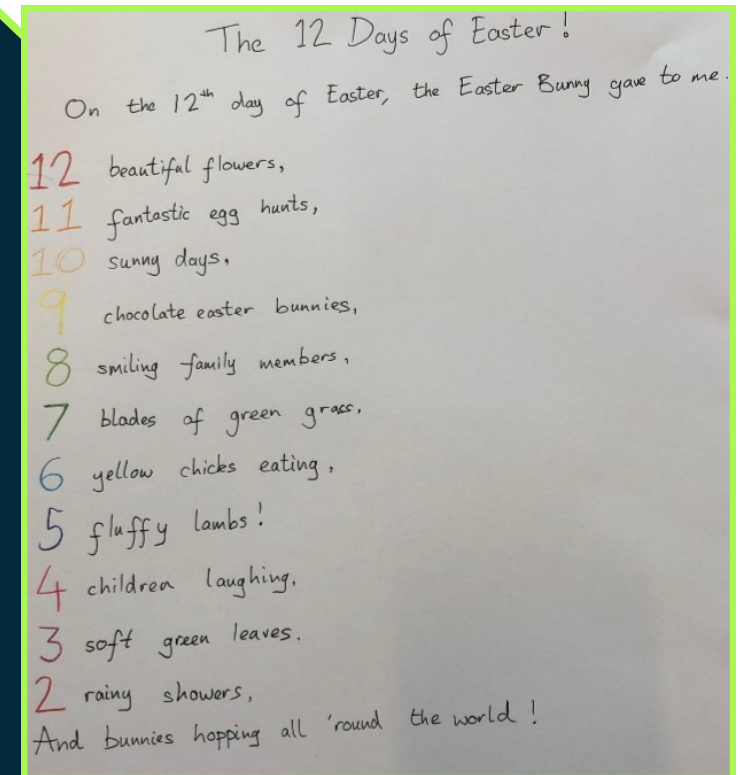 The 12 Days of Easter!
On the 12th day of Easter, the Easter Bunny gave to me.
12 beautiful flowers,
11 fantastic egg hunts,
10 sunny days.
9 chocolate easter bunnies,
8 smiling family members,
7 blades of green grass.
6 yellow chicks eating,
5 fluffy lambs!
4 children laughing,
3 soft green leaves.
2 rainy showers,
And bunnies hopping all 'round the world!